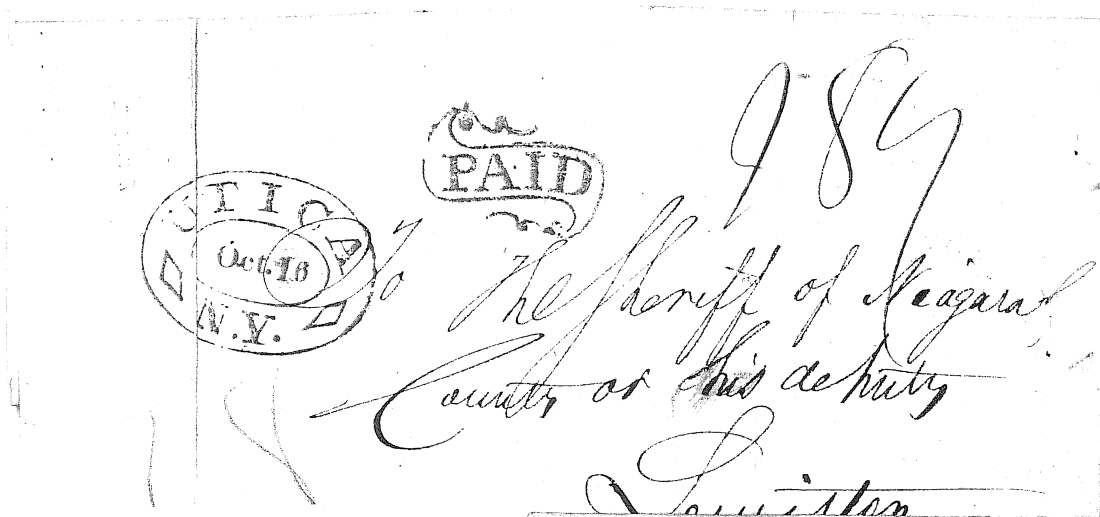 PAID
UTICA
Oct. 16
N.Y.
To The Sheriff of Niagara
County or his deputy
Lewiston